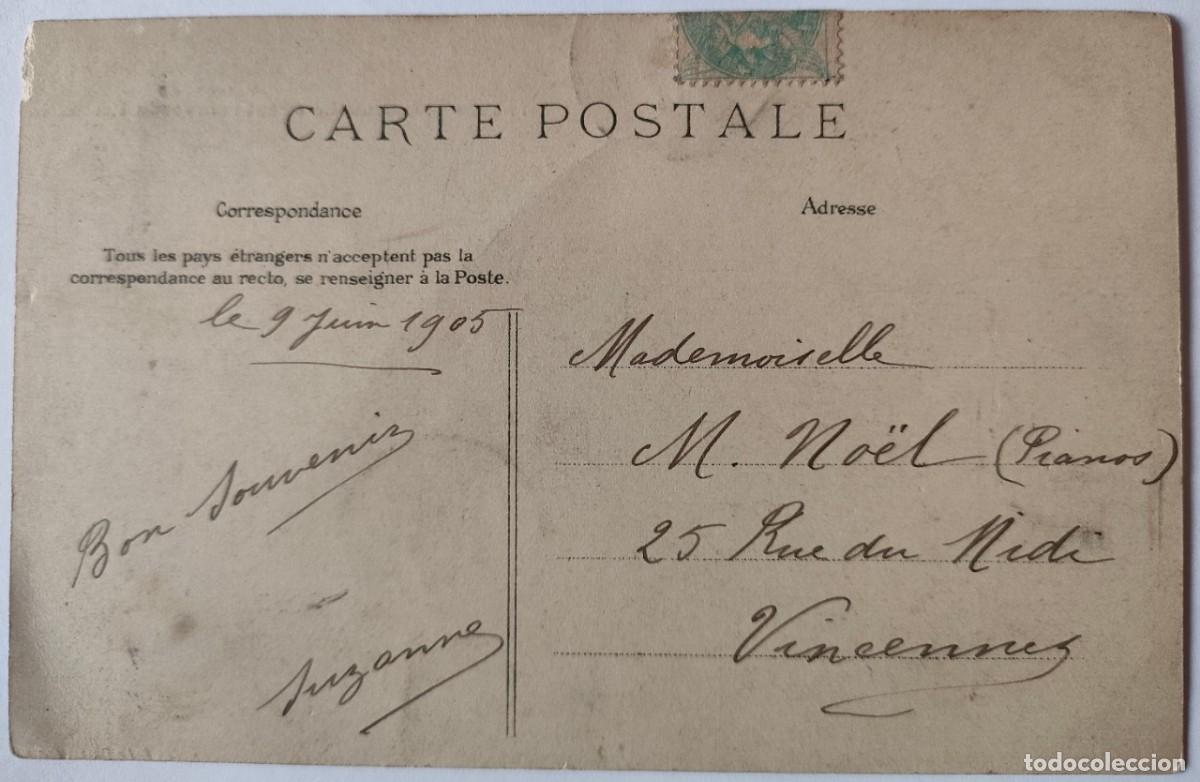 CARTE POSTALE
Correspondance
Tous les pays étrangers n'acceptent pas la
correspondance au recto, se renseigner à la Poste.
le 9 Juin 1905
Bon Souvenir
Suzanne
Adresse
Mademoiselle
M. Noël (Pianos)
25 Rue du Midi
Vincennes
todocoleccion